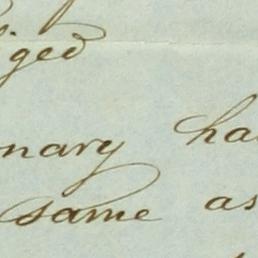 ged
nary ha
same as